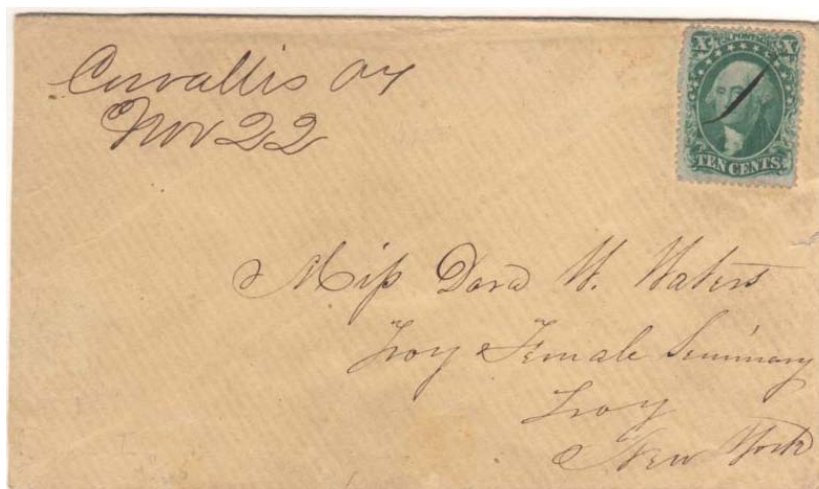 Corvallis OT
Nov 22
X U.S. POSTAGE X
TEN CENTS
Miss Dora W. Waters
Troy Female Seminary
Troy
New York